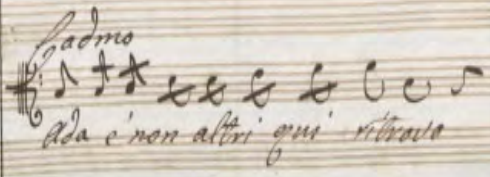 Cadmo
Ada e non altri qui ritrovo